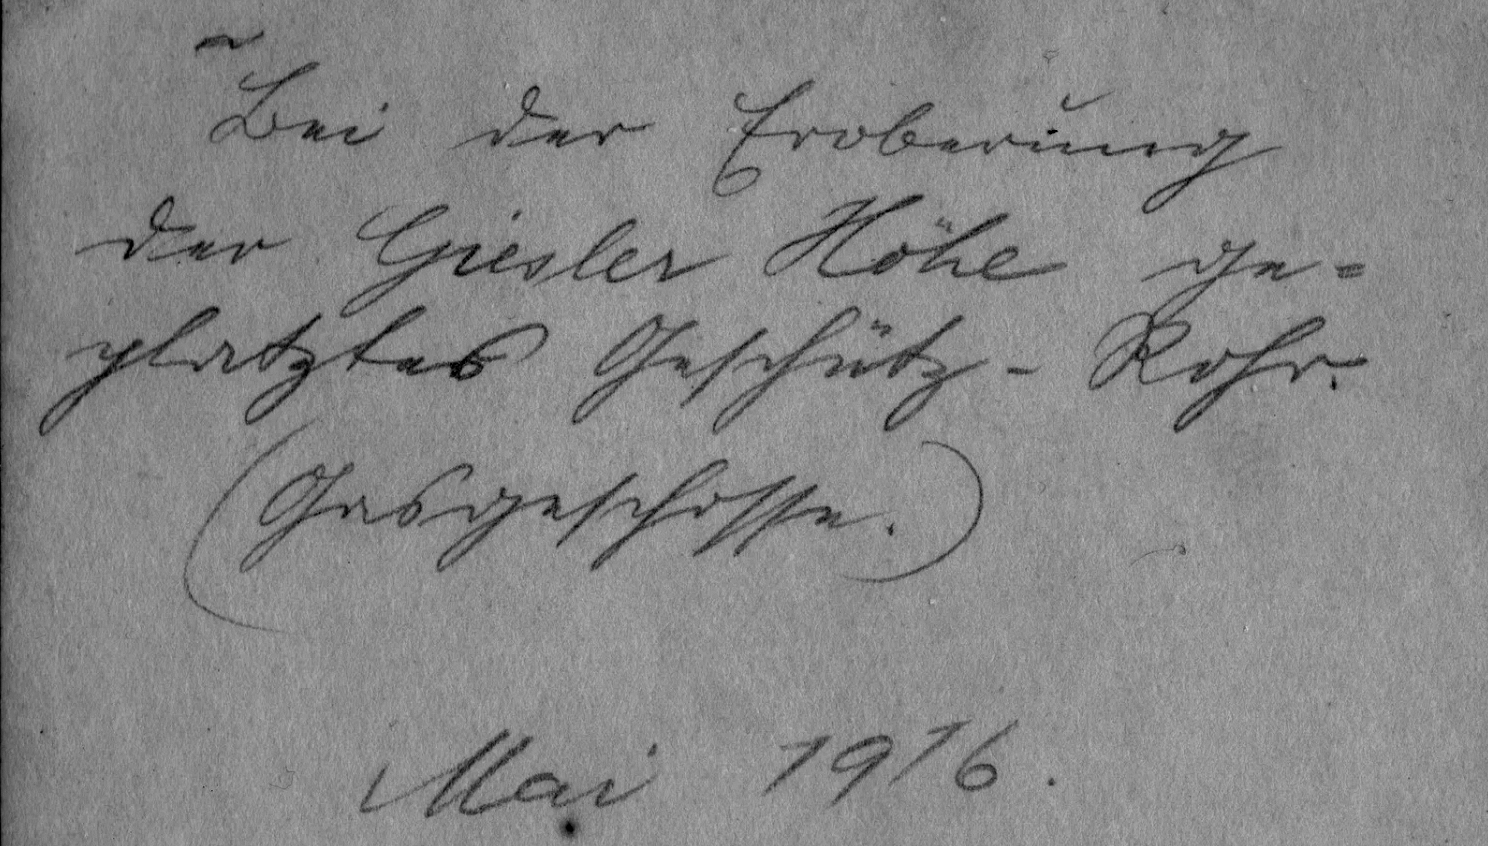 Bei der Eroberung
der Giesler Höhe ge=
platztes Geschütz-Rohr.
(Gasgeschosse.)
Mai 1916.